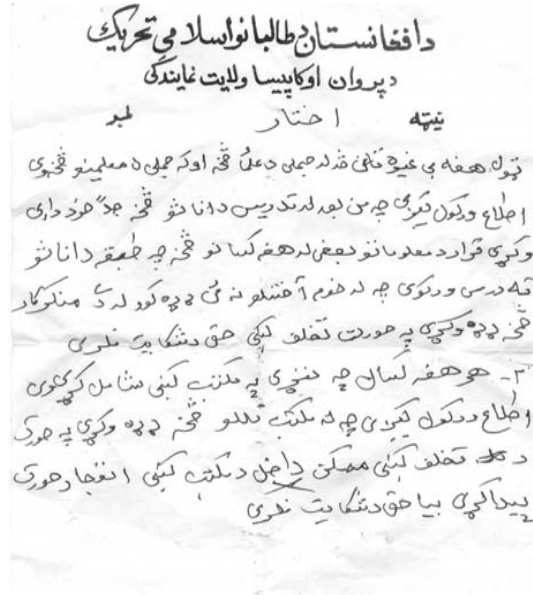 د افغانستان د طالبانو اسلامي تحریک
د پروان او کاپیسا ولایت نمایندګی
نیټه اختار نمبر
ټول هغه بی غیره څخه او که د معلمینو څخه وی
اطلاع ورکول کیږی چه من بعد له تدریس د اناثو څخه جداً خودداری
وکړی قرار د معلوماتو بعضی له هغه کسانو څخه چه طبقه اناثو
ته درس ورکوی چه له خپلو نه ئی ډډه کوو له دی منکر کار
څخه ډډه وکړی په صورت تخلف کښی حق د شکایت نلری
۲- هر هغه کسان چه نجونی په مکتب کښی شامل کړی وی
اطلاع ورکول کیږی چه له مکتب تللو څخه ډډه وکړی په صورت
د تخلف کښی ممکن داخل د مکتب کښی انفجار صورت
پیدا کړی بیا حق د شکایت نلری